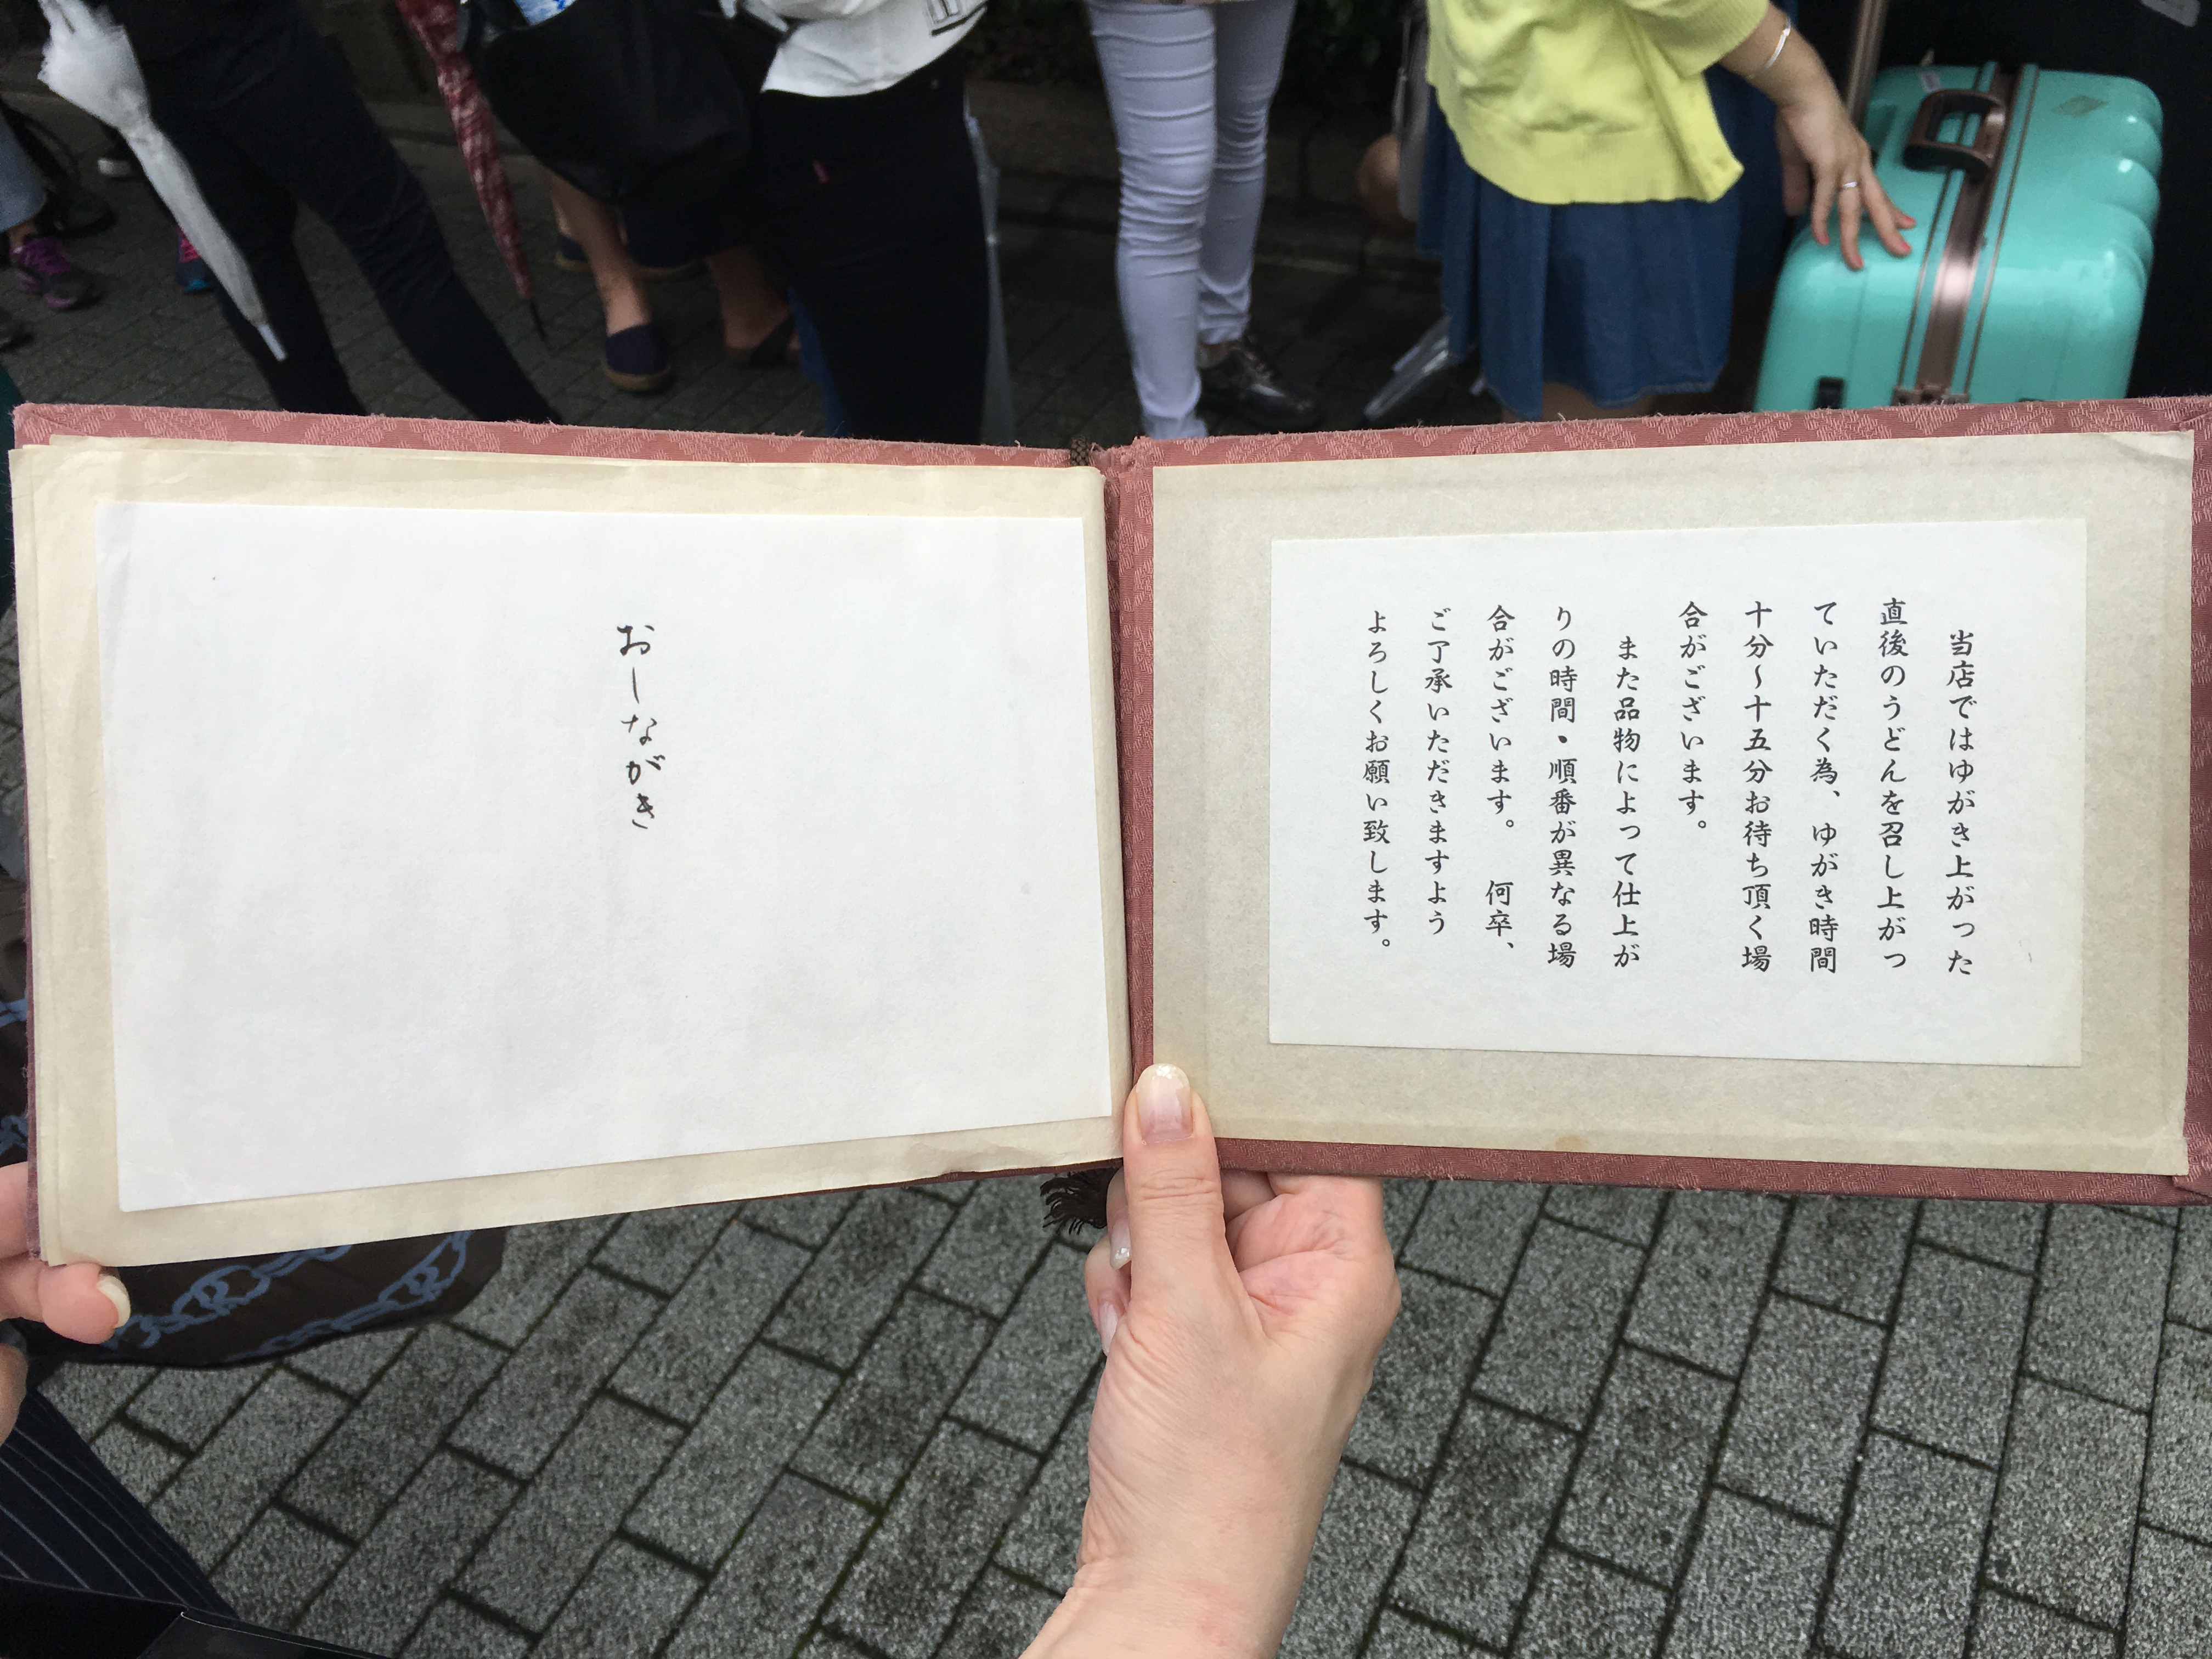 当店ではゆがき上がった
直後のうどんを召し上がっ
ていただく為、ゆがき時間
十分～十五分お待ち頂く場
合がございます。
また品物によって仕上が
りの時間・順番が異なる場
合がございます。　何卒、
ご了承いただきますよう
よろしくお願い致します。
おしながき